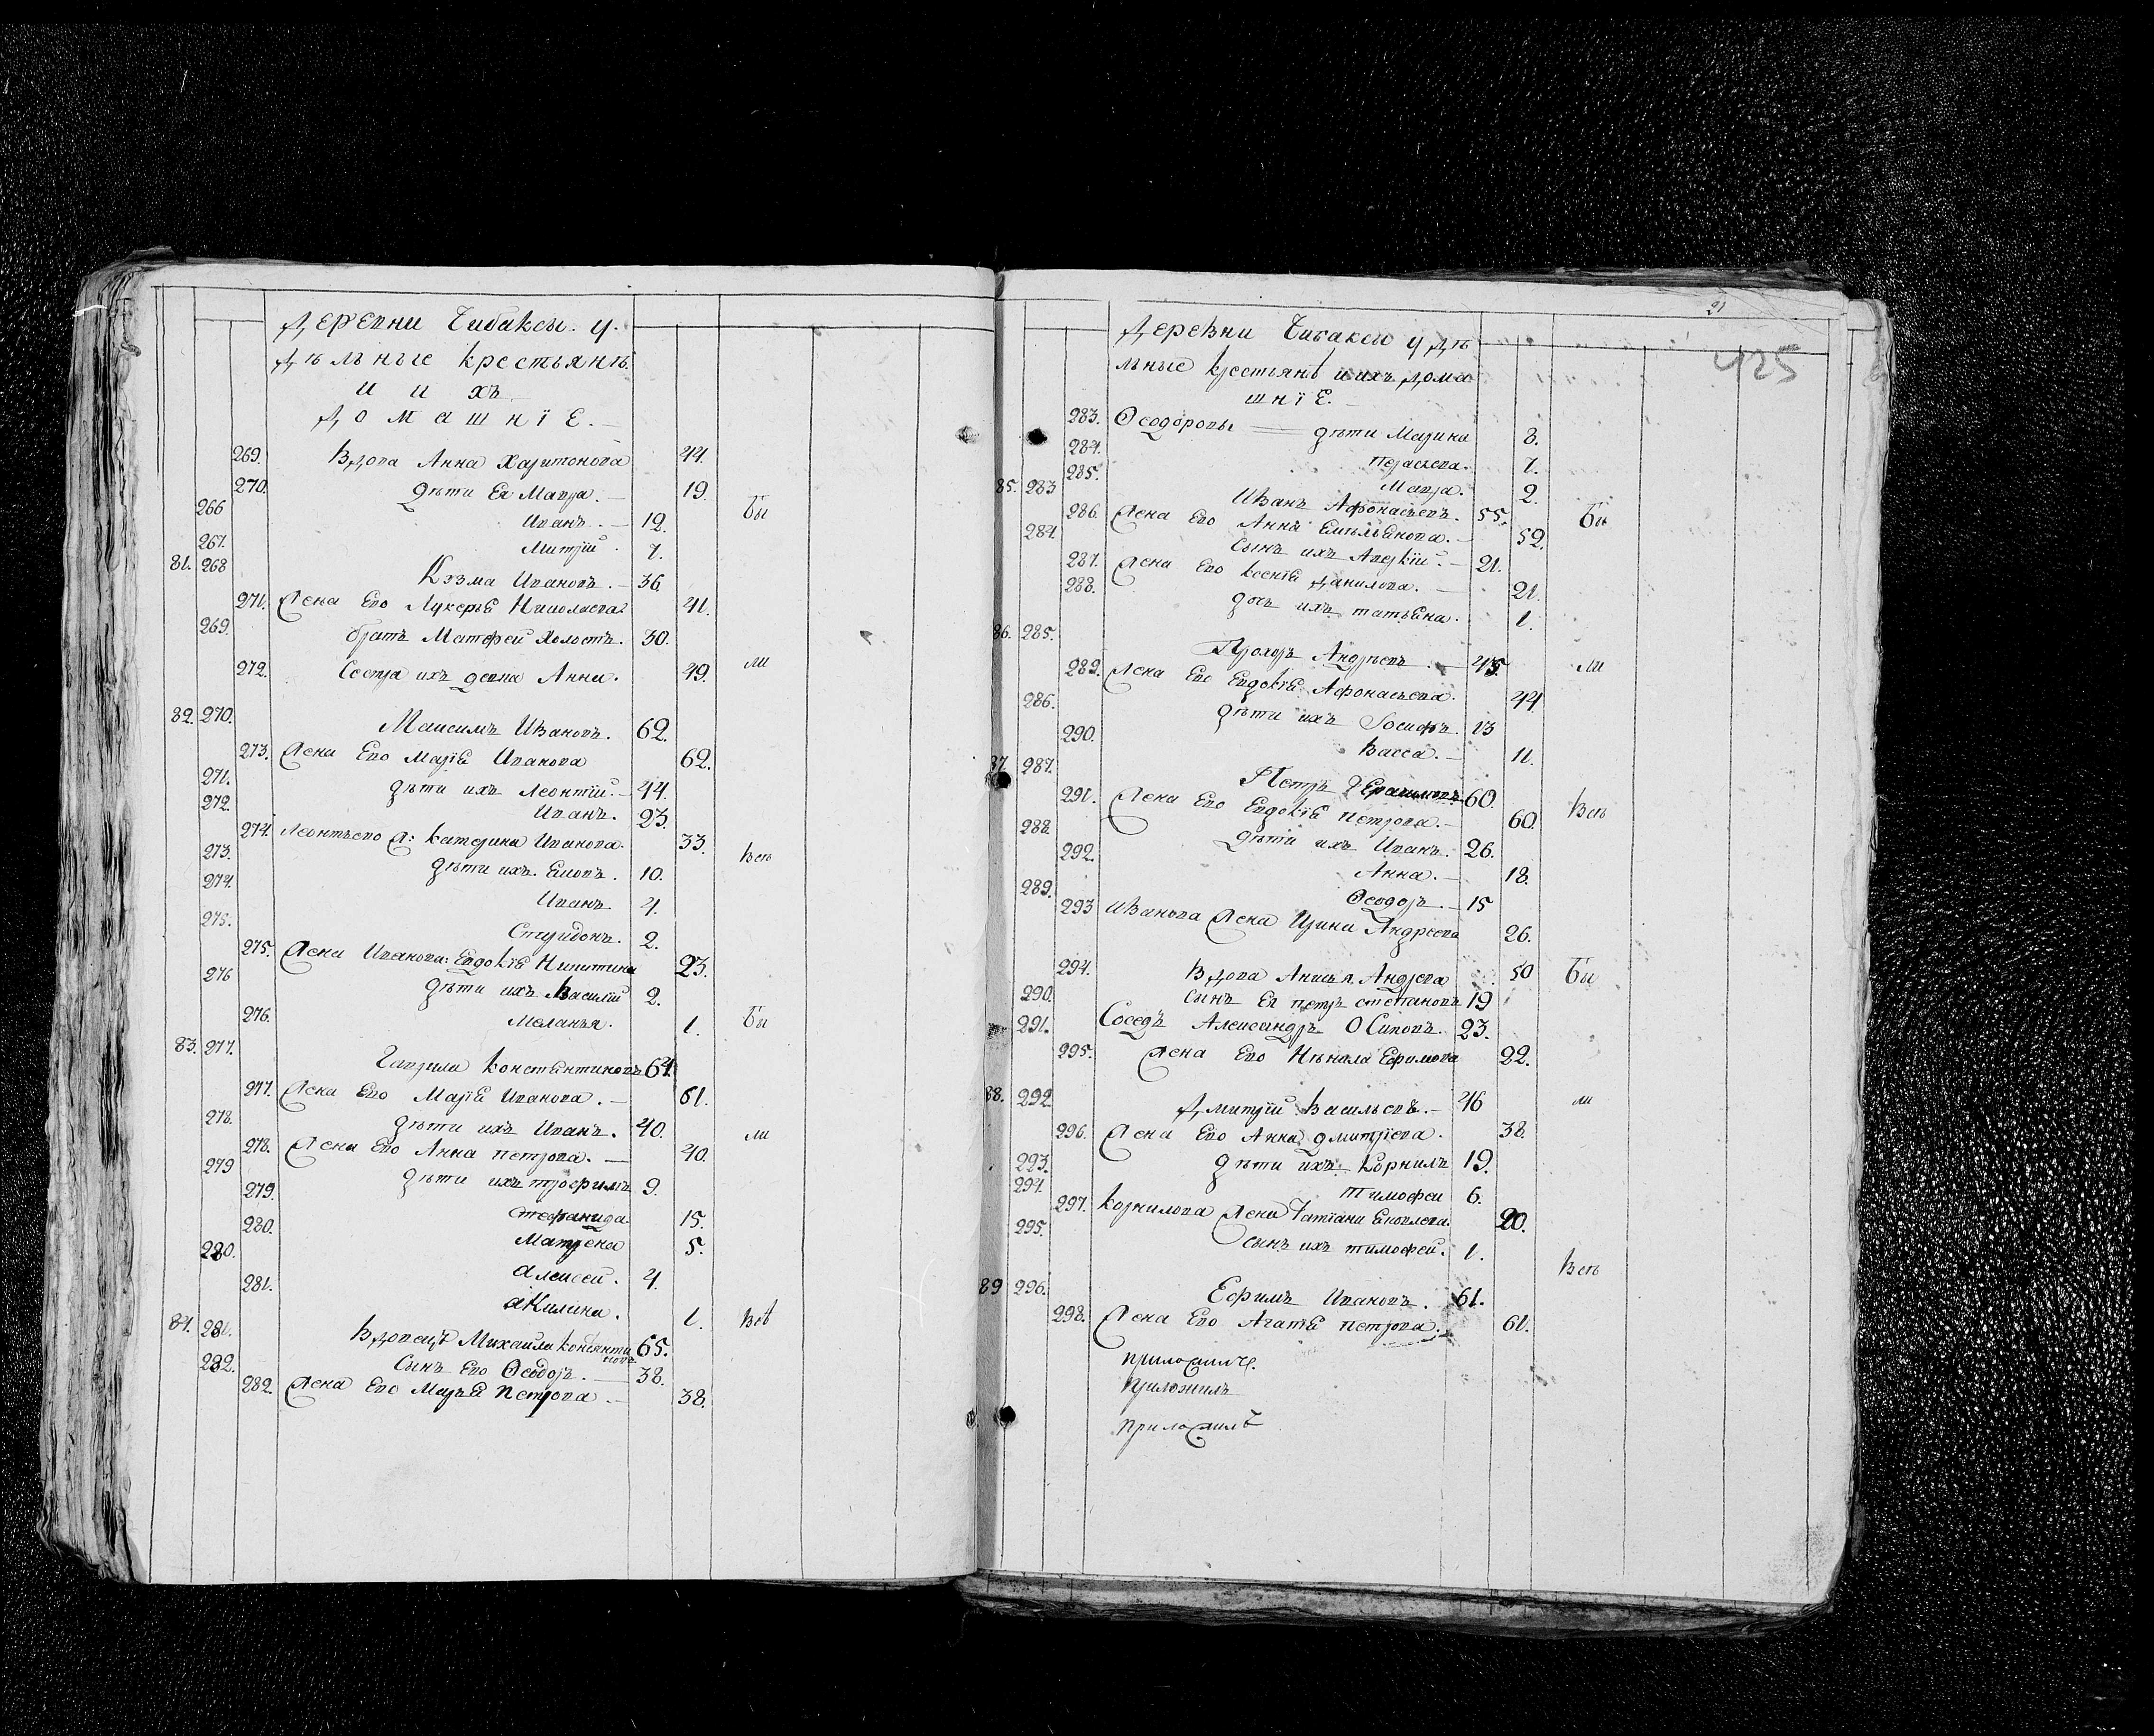 Деревни Чибаксы. у.
дѣльные крестьянѣ
и ихъ
домашнїе.
269. Вдова Анна Харитонова 44.
270. дѣти Ея Мавра. 19
266 Иванъ. 12. Бы
267. Митрїй. 7.
81. 268 Кузма Ивановъ. 36.
271. Жена Его Лукерья Николаева 41.
269. братъ Матфей холостъ. 30.
272. Сестра ихъ девка Анна. 49. ли
82. 270. Максимъ Ивановъ. 62.
273. Жена Его Марїя Иванова 62.
271. дѣти ихъ Леонтїй. 44.
272. Иванъ. 23.
274. Леонтьево ж: катерина Иванова. 33.
273. дѣти ихъ. 10. Всѣ
274. Иванъ 4.
275. 2.
275. Жена Иванова: Евдокїя Никитина 23.
276 дѣти ихъ Василїй 2.
276. Меланья. 1. Бы
83. 277. Гаврила констентиновъ 64.
277. Жена Его Марїя Иванова. 61.
278. дѣти ихъ Иванъ. 40. ли
278. Жена Его Анна петрова. 40.
279 дѣти ихъ трофимъ 9.
279. стефанида 15.
280. Матрена 5.
280. алексей. 4.
281. акилина. 1. Всѣ
84. 281. Вдовецъ Михайла констянтиновъ 65.
282. Сынъ Его Ѳеодоръ. 38.
282. Жена Его Марья петрова 38.
21
425
Деревни Чибаксы удѣ
льные крестьянѣ и ихъ дома
шнїе.
283. Ѳеодоровы дѣти Марина 8.
284. Параскева. 7.
285. Мавра. 2.
85. 283 Иванъ Афонасьевъ. 55. Бы
286. Жена Его Анна Емельянова. 52.
284. Сынъ ихъ Аверкїй. 21.
287. Жена Его ксенїя данилова. 21.
288. дочь ихъ татьяна. 1.
86. 285. Прохоръ Андреевъ 45. ли
289. Жена Его Евдокїя Афонасьева. 44.
286. дѣти ихъ Iосифъ. 13
290. Васса. 11.
87. 287. Петръ 60.
291. Жена Его Евдокїя петрова. 60. Всѣ
288. дѣти ихъ Иванъ. 26.
292. Анна. 18.
289. Ѳеодоръ. 15
293 Иванова Жена Ирина Андреева 26.
294. Вдова Анисья Андреева 50 Бы
290. Сынъ Ея петръ степановъ 19
291. Соседъ Александръ Осиповъ. 23.
295. Жена Его Ненила Ефимова 22.
88. 292. Дмитрїй Васильевъ. 46 ли
296. Жена Его Анна дмитрїева. 38.
293. дѣти ихъ Корнилъ 19.
294. тимофей 6.
297. корнилова Жена Татїана Яковлева. 20.
295. Сынъ ихъ тимофей. 1.
Всѣ
89 296. Ефимъ Ивановъ. 61.
298. Жена Его Агатья петрова. 61.
приложилъ
приложилъ